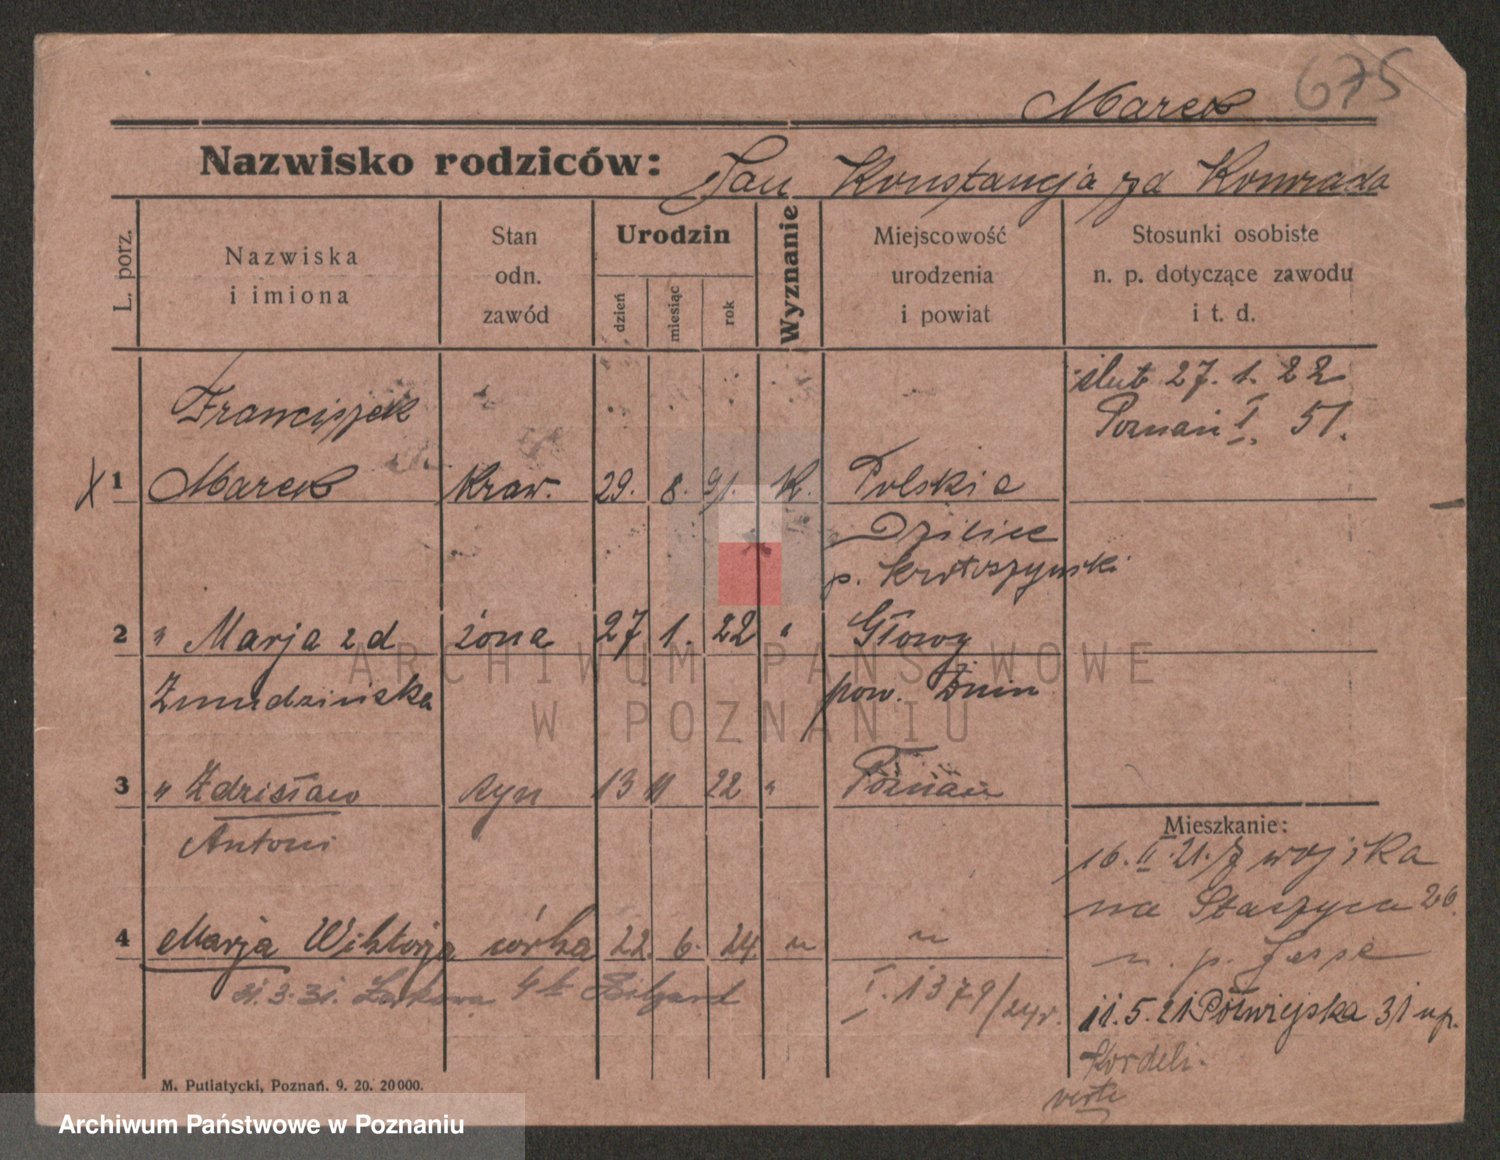 675
Marek
Nazwisko rodziców: Jan Konstancja zd Konrada
L. porz.
Nazwiska
i imiona
Stan
odn.
zawód
Urodzin
dzień
miesiąc
rok
Wyznanie
Miejscowość
urodzenia
i powiat
Stosunki osobiste
n. p. dotyczące zawodu
i t. d.
ślub 27. 1. 22
Poznań I. 51.
Franciszek
X 1 Marek Kraw. 29. 8. 91. K. Polskie
Dzielice
p. krotoszyński
2 " Marja zd żona 27 1. 22 " Głowy
Żmudzińska pow. Żnin
3 " Zdzisław syn 13 11 22 " Poznań
Antoni
Mieszkanie:
16. II. 21. Z wojska
na Staszyca 26.
u. p.
4 Marja Wiktorja córka 22. 6. 24. " "
31. 3. 31.
I. 1379/24r.
11. 5. 21 Półwiejska 31 u p.
Kordeli.
verte
M. Putiatycki, Poznań. 9. 20. 20000.
ARCHIWUM PAŃSTWOWE
W POZNANIU
Archiwum Państwowe w Poznaniu